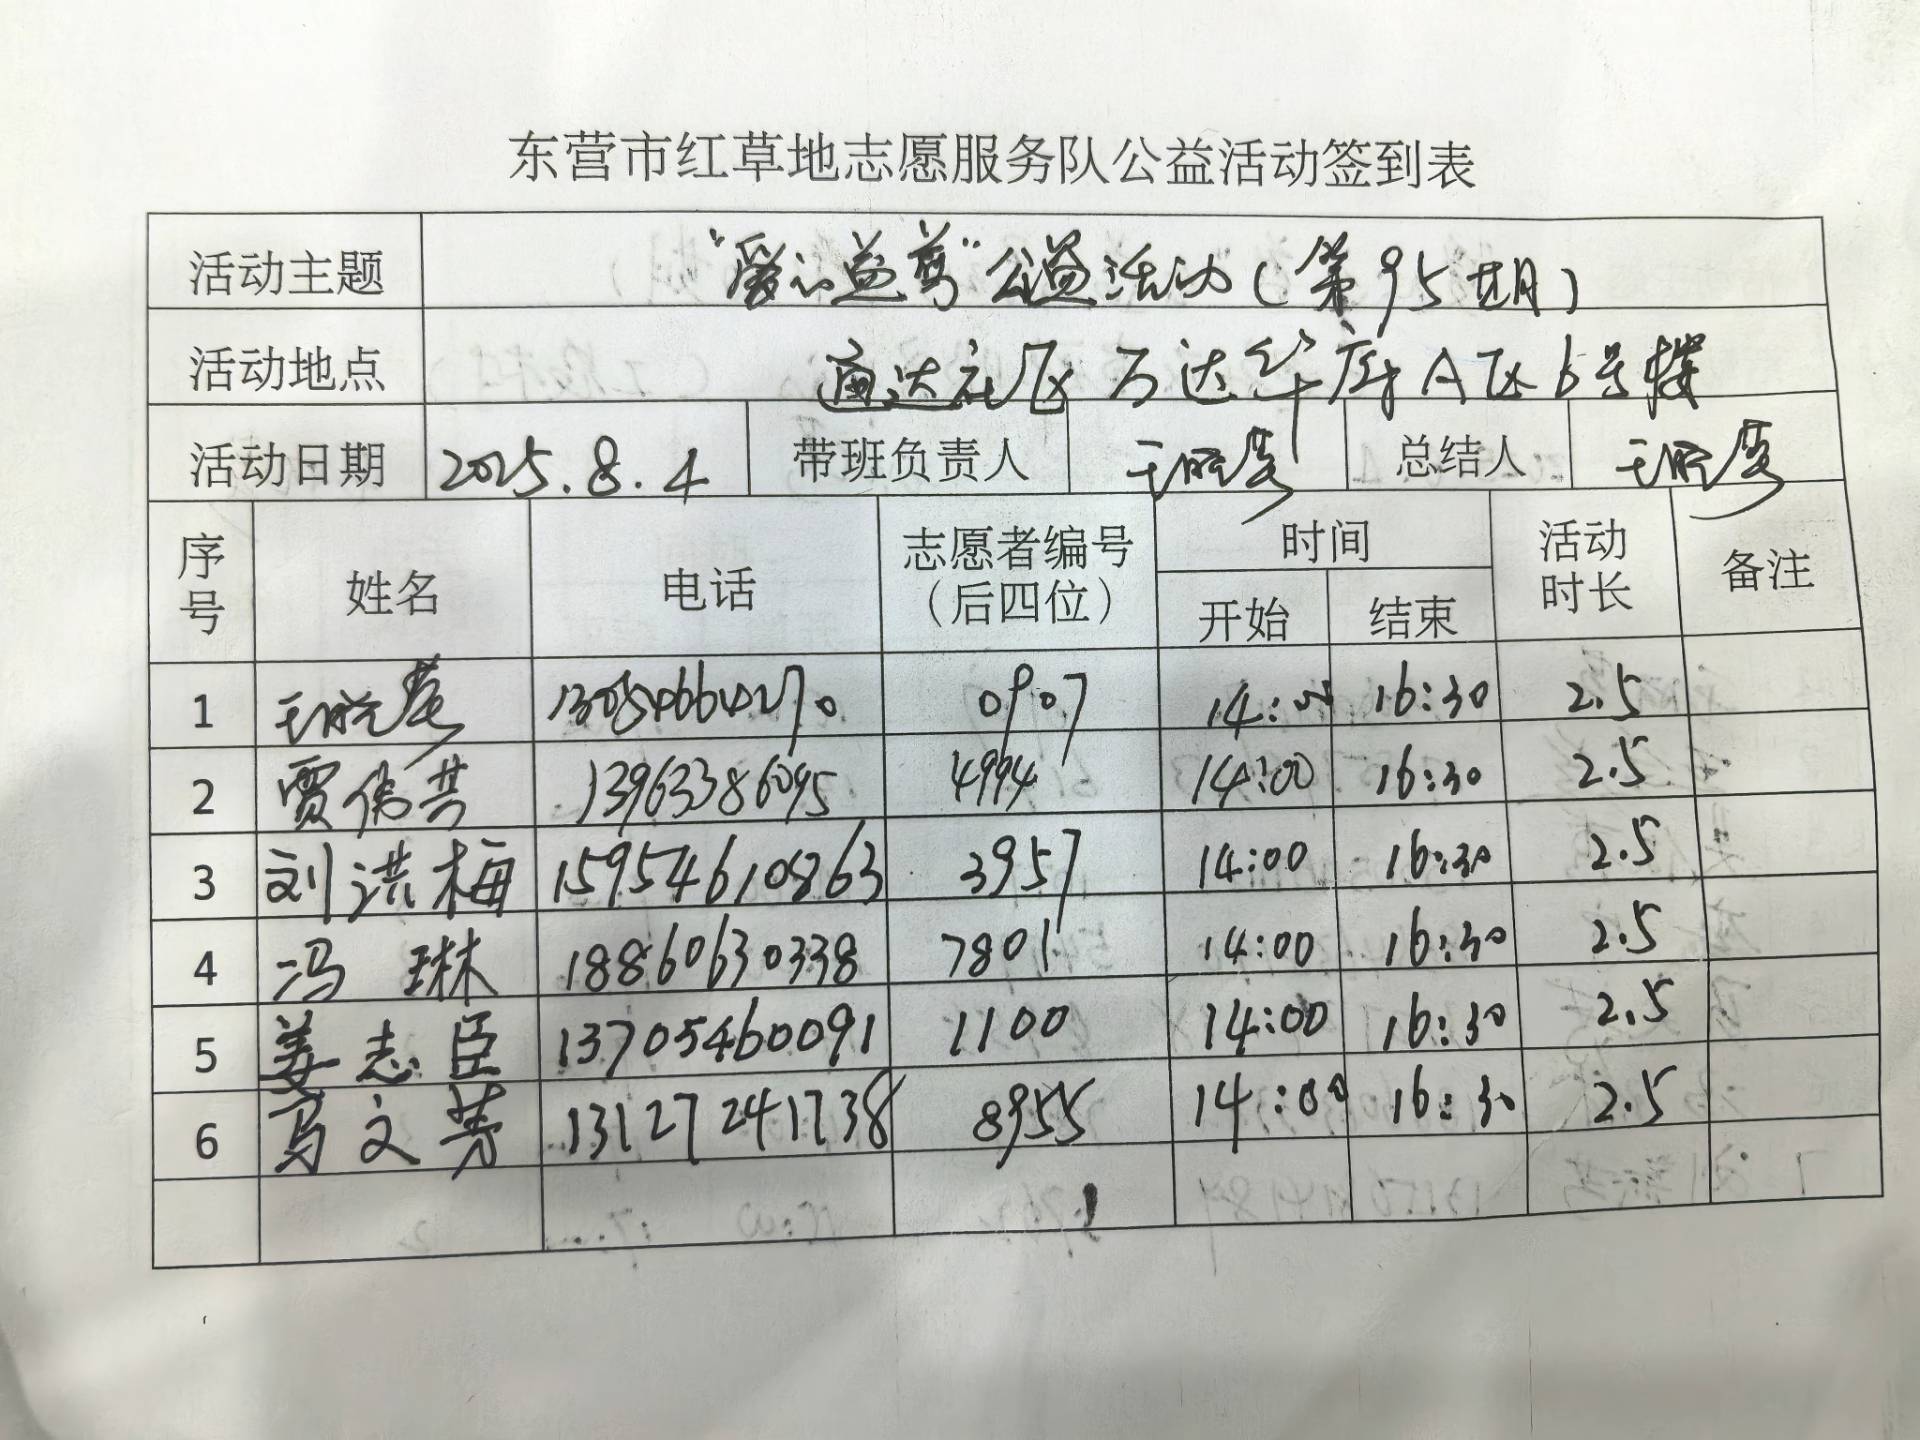 东营市红草地志愿服务队公益活动签到表
活动主题 “爱心益剪”公益活动(第95期)
活动地点 通达社区万达华府A区6号楼
活动日期 2025.8.4 带班负责人 王晓 总结人 王晓
序号 姓名 电话 志愿者编号(后四位) 时间 开始 结束 活动时长 备注
1 王晓 0907 14:00 16:30 2.5
2 贾伟 13963386095 4994 14:00 16:30 2.5
3 刘洪梅 15954610863 3957 14:00 16:30 2.5
4 冯琳 18860630338 7801 14:00 16:30 2.5
5 姜志臣 13705460091 1100 14:00 16:30 2.5
6 马文芳 13127241738 8955 14:00 16:30 2.5